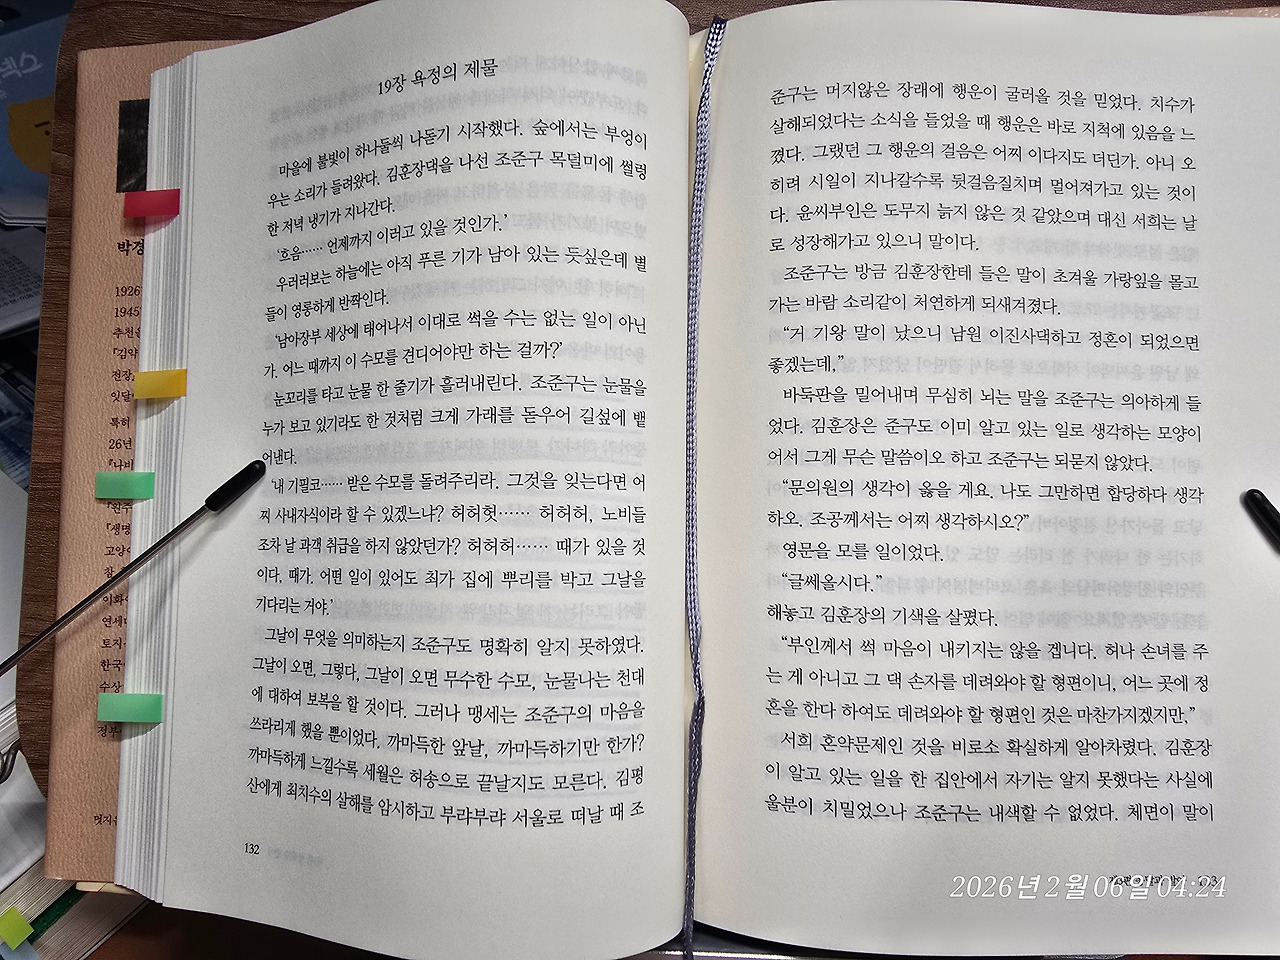 박경
1926
1945
추천
『김약
전장
잇달
특히
26년
『나비
『원주
『생명
고양이
잠
이화
연세대
토지
한국
수상
정부
멋지
19장 욕정의 제물
마을에 불빛이 하나둘씩 나돋기 시작했다. 숲에서는 부엉이
우는 소리가 들려왔다. 김훈장댁을 나선 조준구 목덜미에 썰렁
한 저녁 냉기가 지나간다.
'흐음…… 언제까지 이러고 있을 것인가.'
우러러보는 하늘에는 아직 푸른 기가 남아 있는 듯싶은데 별
들이 영롱하게 반짝인다.
'남아장부 세상에 태어나서 이대로 썩을 수는 없는 일이 아닌
가. 어느 때까지 이 수모를 견디어야만 하는 걸까?'
눈꼬리를 타고 눈물 한 줄기가 흘러내린다. 조준구는 눈물을
누가 보고 있기라도 한 것처럼 크게 가래를 돋우어 길섶에 뱉
어낸다.
'내 기필코…… 받은 수모를 돌려주리라. 그것을 잊는다면 어
찌 사내자식이라 할 수 있겠느냐? 허허헛…… 허허허, 노비들
조차 날 과객 취급을 하지 않았던가? 허허허…… 때가 있을 것
이다, 때가. 어떤 일이 있어도 최가 집에 뿌리를 박고 그날을
기다리는 거야.'
그날이 무엇을 의미하는지 조준구도 명확히 알지 못하였다.
그날이 오면, 그렇다, 그날이 오면 무수한 수모, 눈물나는 천대
에 대하여 보복을 할 것이다. 그러나 맹세는 조준구의 마음을
쓰라리게 했을 뿐이었다. 까마득한 앞날, 까마득하기만 한가?
까마득하게 느낄수록 세월은 허송으로 끝날지도 모른다. 김평
산에게 최치수의 살해를 암시하고 부랴부랴 서울로 떠날 때 조
132
준구는 머지않은 장래에 행운이 굴러올 것을 믿었다. 치수가
살해되었다는 소식을 들었을 때 행운은 바로 지척에 있음을 느
꼈다. 그랬던 그 행운의 걸음은 어찌 이다지도 더딘가. 아니 오
히려 시일이 지나갈수록 뒷걸음질치며 멀어져가고 있는 것이
다. 윤씨부인은 도무지 늙지 않은 것 같았으며 대신 서희는 날
로 성장해가고 있으니 말이다.
조준구는 방금 김훈장한테 들은 말이 초겨울 가랑잎을 몰고
가는 바람 소리같이 처연하게 되새겨졌다.
"거 기왕 말이 났으니 남원 이진사댁하고 정혼이 되었으면
좋겠는데,"
바둑판을 밀어내며 무심히 뇌는 말을 조준구는 의아하게 들
었다. 김훈장은 준구도 이미 알고 있는 일로 생각하는 모양이
어서 그게 무슨 말씀이오 하고 조준구는 되묻지 않았다.
"문의원의 생각이 옳을 게요. 나도 그만하면 합당하다 생각
하오. 조공께서는 어찌 생각하시오?"
영문을 모를 일이었다.
"글쎄올시다."
해놓고 김훈장의 기색을 살폈다.
"부인께서 썩 마음이 내키지는 않을 겝니다. 허나 손녀를 주
는 게 아니고 그 댁 손자를 데려와야 할 형편이니, 어느 곳에 정
혼을 한다 하여도 데려와야 할 형편인 것은 마찬가지겠지만,"
서희 혼약문제인 것을 비로소 확실하게 알아차렸다. 김훈장
이 알고 있는 일을 한 집안에서 자기는 알지 못했다는 사실에
울분이 치밀었으나 조준구는 내색할 수 없었다. 체면이 말이
2026년 2월 06일 04:24